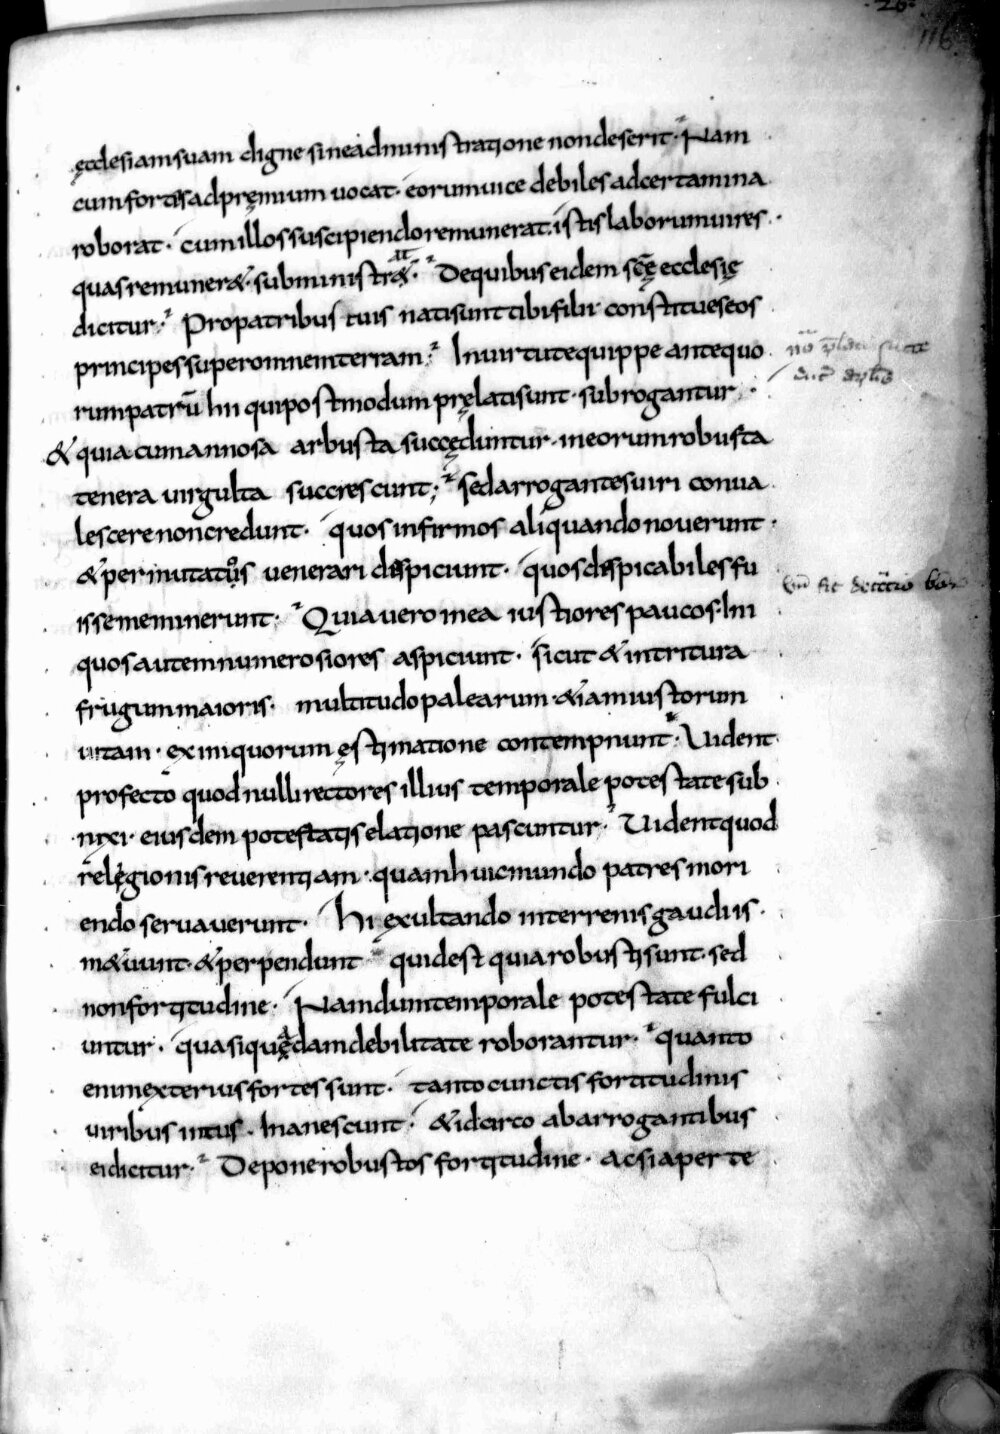 116
ęcclesiam suam digne sine administratione non deserit. Nam
cum fortes ad pręmium uocat. eorum uice debiles ad certamina
roborat. cum illos suscipiendo remunerat. istis laborum uires
quas remuner&. subministr&. De quibus eidem scę̄ ecclesię
dicitur. Pro patribus tuis nati sunt tibi filii constitues eos
principes super omnem terram. In uirtute quippe antequo
rum patrū hii qui postmodum pręlati sunt. subrogantur
& quia cum annosa arbusta succęduntur. in eorum robusta
tenera uirgulta succrescunt; sed arrogantes uiri conua
lescere non credunt. quos infirmos aliquando nouerunt.
& permutatos uenerari dispiciunt. quos dispicabiles fu
isse meminerunt. Quia uero in ea iustiores paucos. In
quos autem numerosiores aspiciunt. sicut & in tritura
frugum maioris. multitudo palearum. &iam iustorum
uitam. ex iniquorum ęstimatione contempnunt. Uident
profecto quod nulli rectores illius temporale potestate sub
nixi. eiusdem potestatis elatione pascuntur. Uident quod
relęgionis reuerentiam. quam huic mundo patres mori
endo seruauerunt. hi exultando in terrenis gaudiis.
In&uunt. & perpendunt quid est quia robusti sunt. sed
non fortitudine. Nam dum temporale potestate fulci
untur. quasi quędam debilitate roborantur. quanto
enim exterius fortes sunt. tanto cunctis fortitudinis
uiribus intus. Inanescunt. & idcirco ab arrogantibus
ei dicitur. Depone robustos fortitudine. ac si aperte